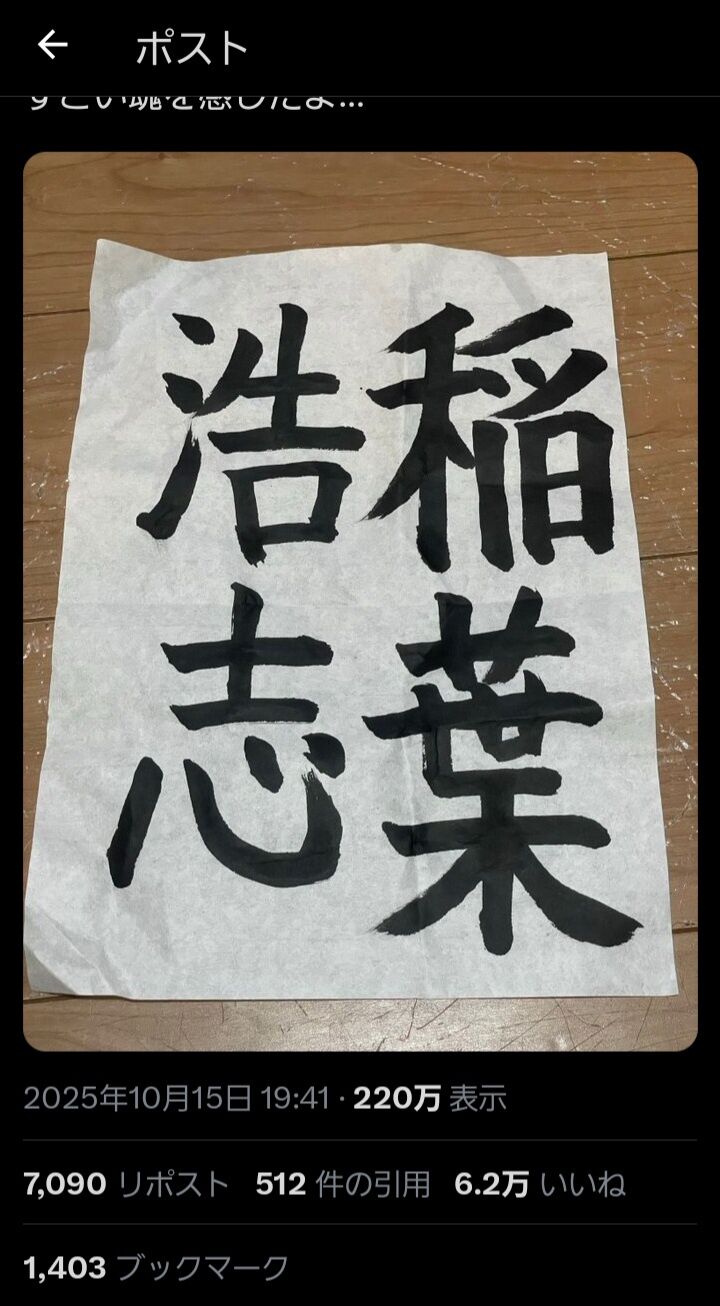 ポスト
すごい魂を感じたよ…
稲葉
浩志
2025年10月15日 19:41 · 220万 表示
7,090 リポスト 512 件の引用 6.2万 いいね
1,403 ブックマーク